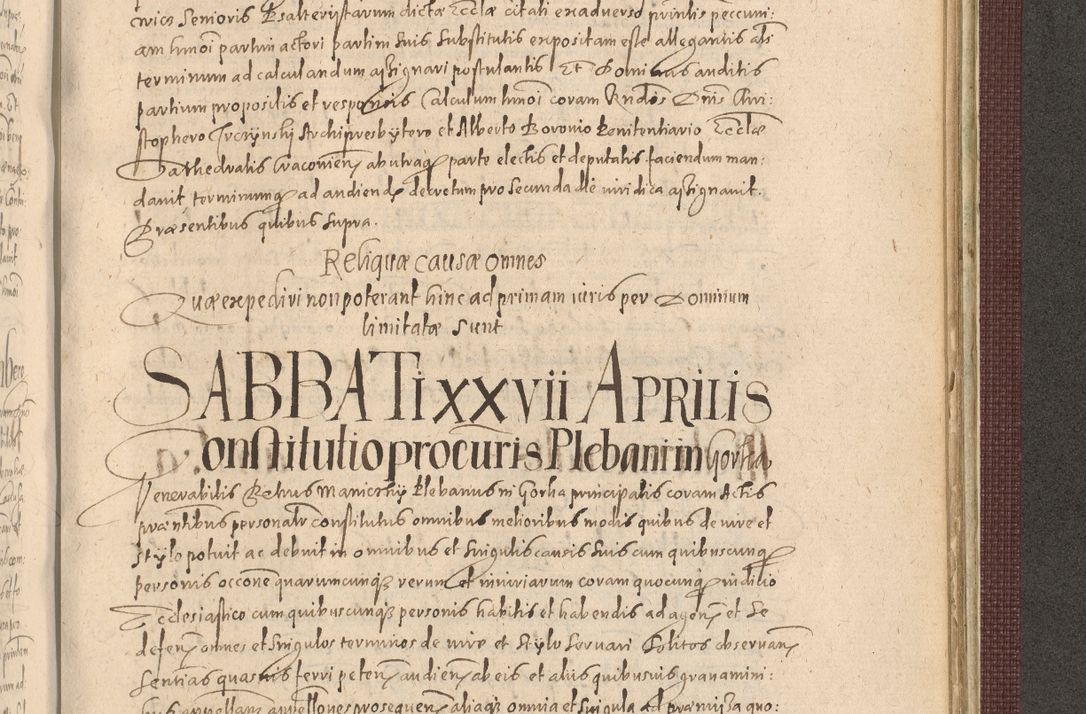 vicæ Senioris Psalteristarum dictæ Ecclæ citati ex adverso prinlis peccuni:
am hmoi partim actori partim suis substitutis expositam esse allegantis als
terminum ad calculandum assignari postulantis Et Dominus auditis
partium propositis et responsis Calculum hmoi coram Rndos Dnis Chri:
stophero Trczynskj Archipresbytero et Alberto Boronio Penitentiario Ecclæ
Cathedralis Cracovien, ab utraqȝ parte electis et deputatis faciendum man:
davit terminumqȝ ad audiendȝ decretum pro secunda die iuridica assignavit.
Præsentibus quibus supra.
Reliquæ causæ omnes
Quæ expediri non poterant hinc ad primam iuris per Dominum
limitatæ sunt
SABBATi xxvii APRILIS
Constitutio procuris Plebani in Gorka
Venerabilis Petrus Maniczky Plebanus in Gorka principalis coram Actis
præntibus personalr constitutus omnibus melioribus modis quibus de iure et
stylo potuit ac debuit in omnibus et singulis causis suis cum quibuscunqȝ
personis occone quarumcunqȝ rerum et iniuriarum coram quocunqȝ iudicio
Ecclesiastico cum quibuscunqȝ personis habitis et habendis ad agen, et se
defen, omnes et singulos terminos de iure et stylo servari solitos observan,
sentias quasvis ferri peten, audien, ab eis et aliis quibusvis gravamini:
bus appellan, appellones prosequen, aliaqȝ omnia et singula ad præmissa quo: